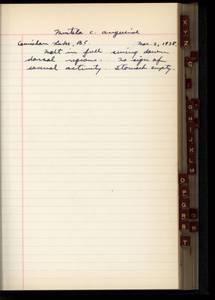 Mustela c. anguinae
Cowichan Lake, BC Nov. 2, 1938
Molt in full swing down
dorsal regions. No sign of
sexual activity Stomach empty.
X
Y
Z
G
H
I
J
K
L
M
O
P
Q
R
S
T